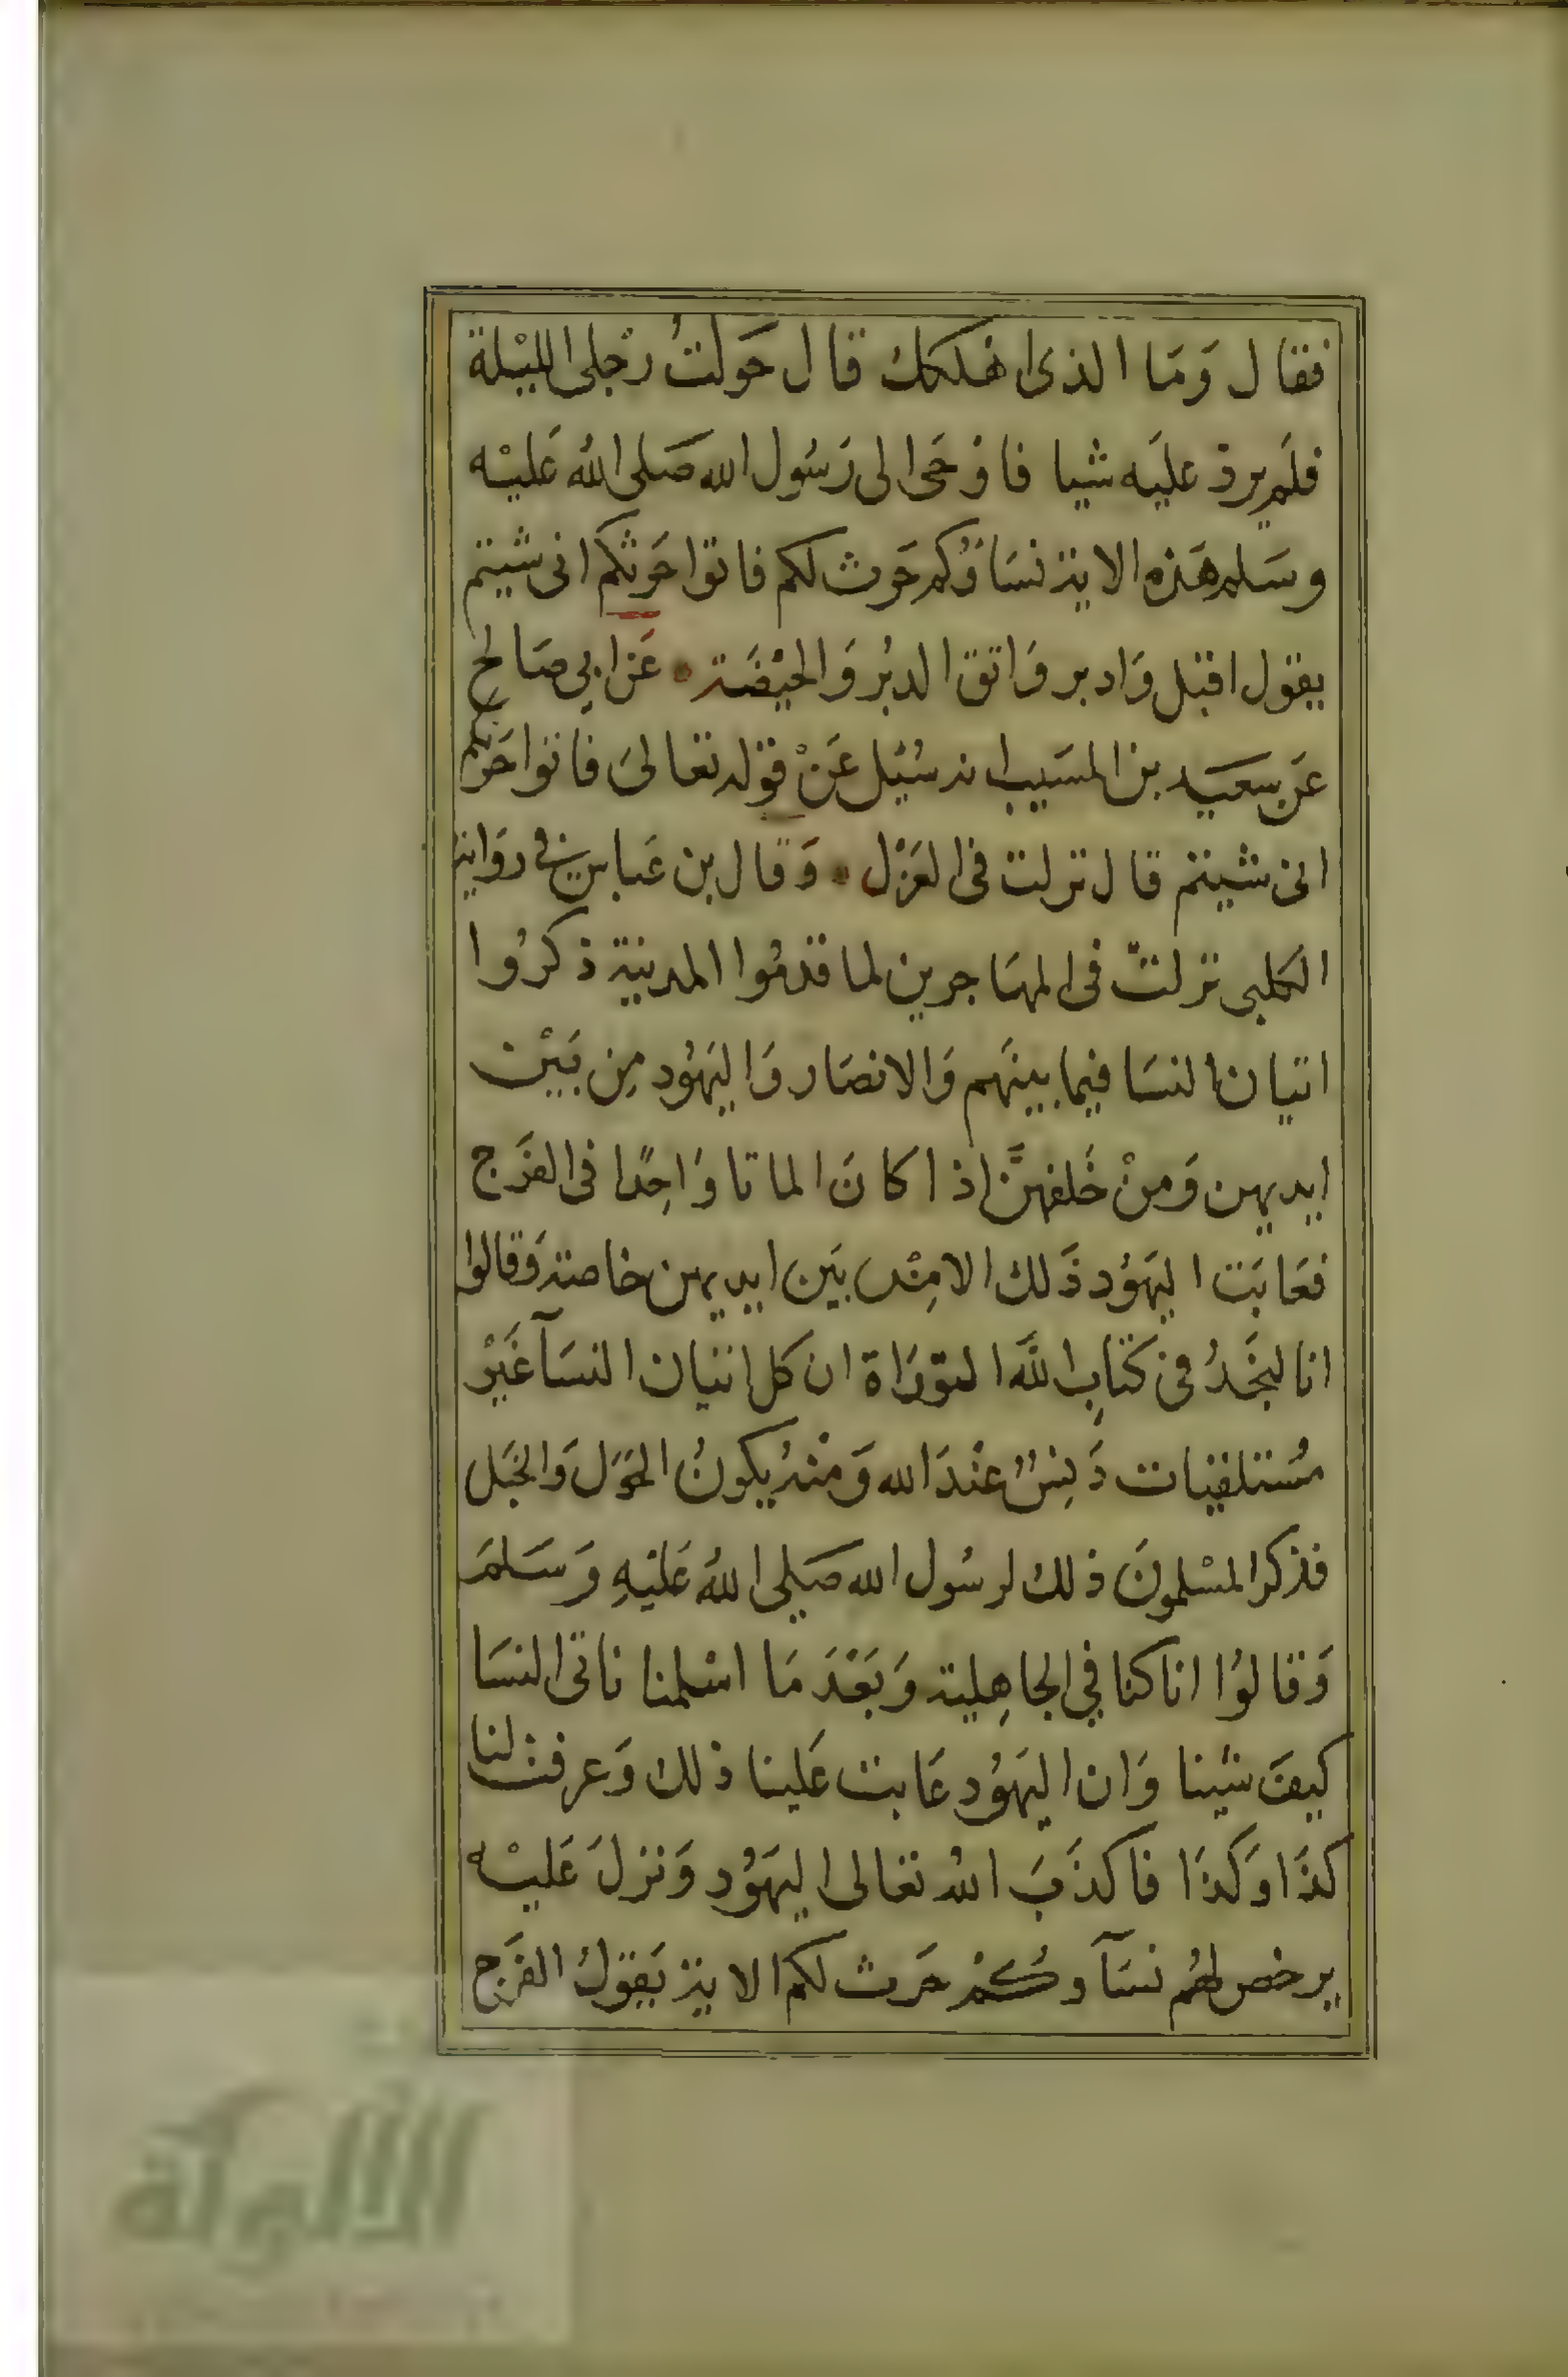 فقال وَمَا الذى اهلكك قال حَولتُ رحْلى الليْلة
فلَم يرد عليَه شيا فاوْحَى الى رَسُول الله صَلى اللهُ عَليْه
وسَلم هَذه الاية نسَاوُكم حَرث لكم فاتوا حَرثكم انى شيتم
يقول اقبل وَادبر وَاتق الدبُر وَالحيْضَة عَن ابي صَالح
عَن سعَيد بن المسَيب انه سُئِل عَنْ قوله تعَالىَ فاتوا حَرثكم
انى شيتم قال نزلت فى العَزْل وَقال بن عَباس فى رَوَاية
الكلبى نزلت فى المهَاجرين لما قدمُوا المدينة ذكرُوا
اتيان النسَا فيما بينهَم وَالانصَار وَاليَهُود مِن بَيْن
ايديهن وَمِنْ خَلفهنَّ اذا كانَ الماتا وَاحِدًا فى الفَرَج
فعَابَت اليهَوُد ذَلك الا مِنْ بَين ايديهن خاصة وَقالوا
انا لنجَدُ فى كَتابِ اللَّه التوَرَاة ان كل اتيان النسَآ غَيْر
مُستلقيات دَنِسٌ عنْدَ الله وَمنْهُ يكونُ الحَوَل وَالخَبَل
فذكر المسْلمونَ ذلك لرسُول الله صَلى اللهُ عَليَهِ وَسَلمَ
وَقالوُا انا كنا فى الجاهِلية وَبَعْدَ مَا اسْلمنا ناتى النسَا
كيفَ شيئنا وَان اليَهوُد عَابت عَلينا ذلك وَعرفت لنا
كذَا وَكذَا فاكذَبَ اللهُ تعَالى اليهَوُد وَنزلَ عَليْه
يرخص لهُم نسَآوكُمْ حَرث لكم الاية يَقوَلُ الفَرَج
الألوكة